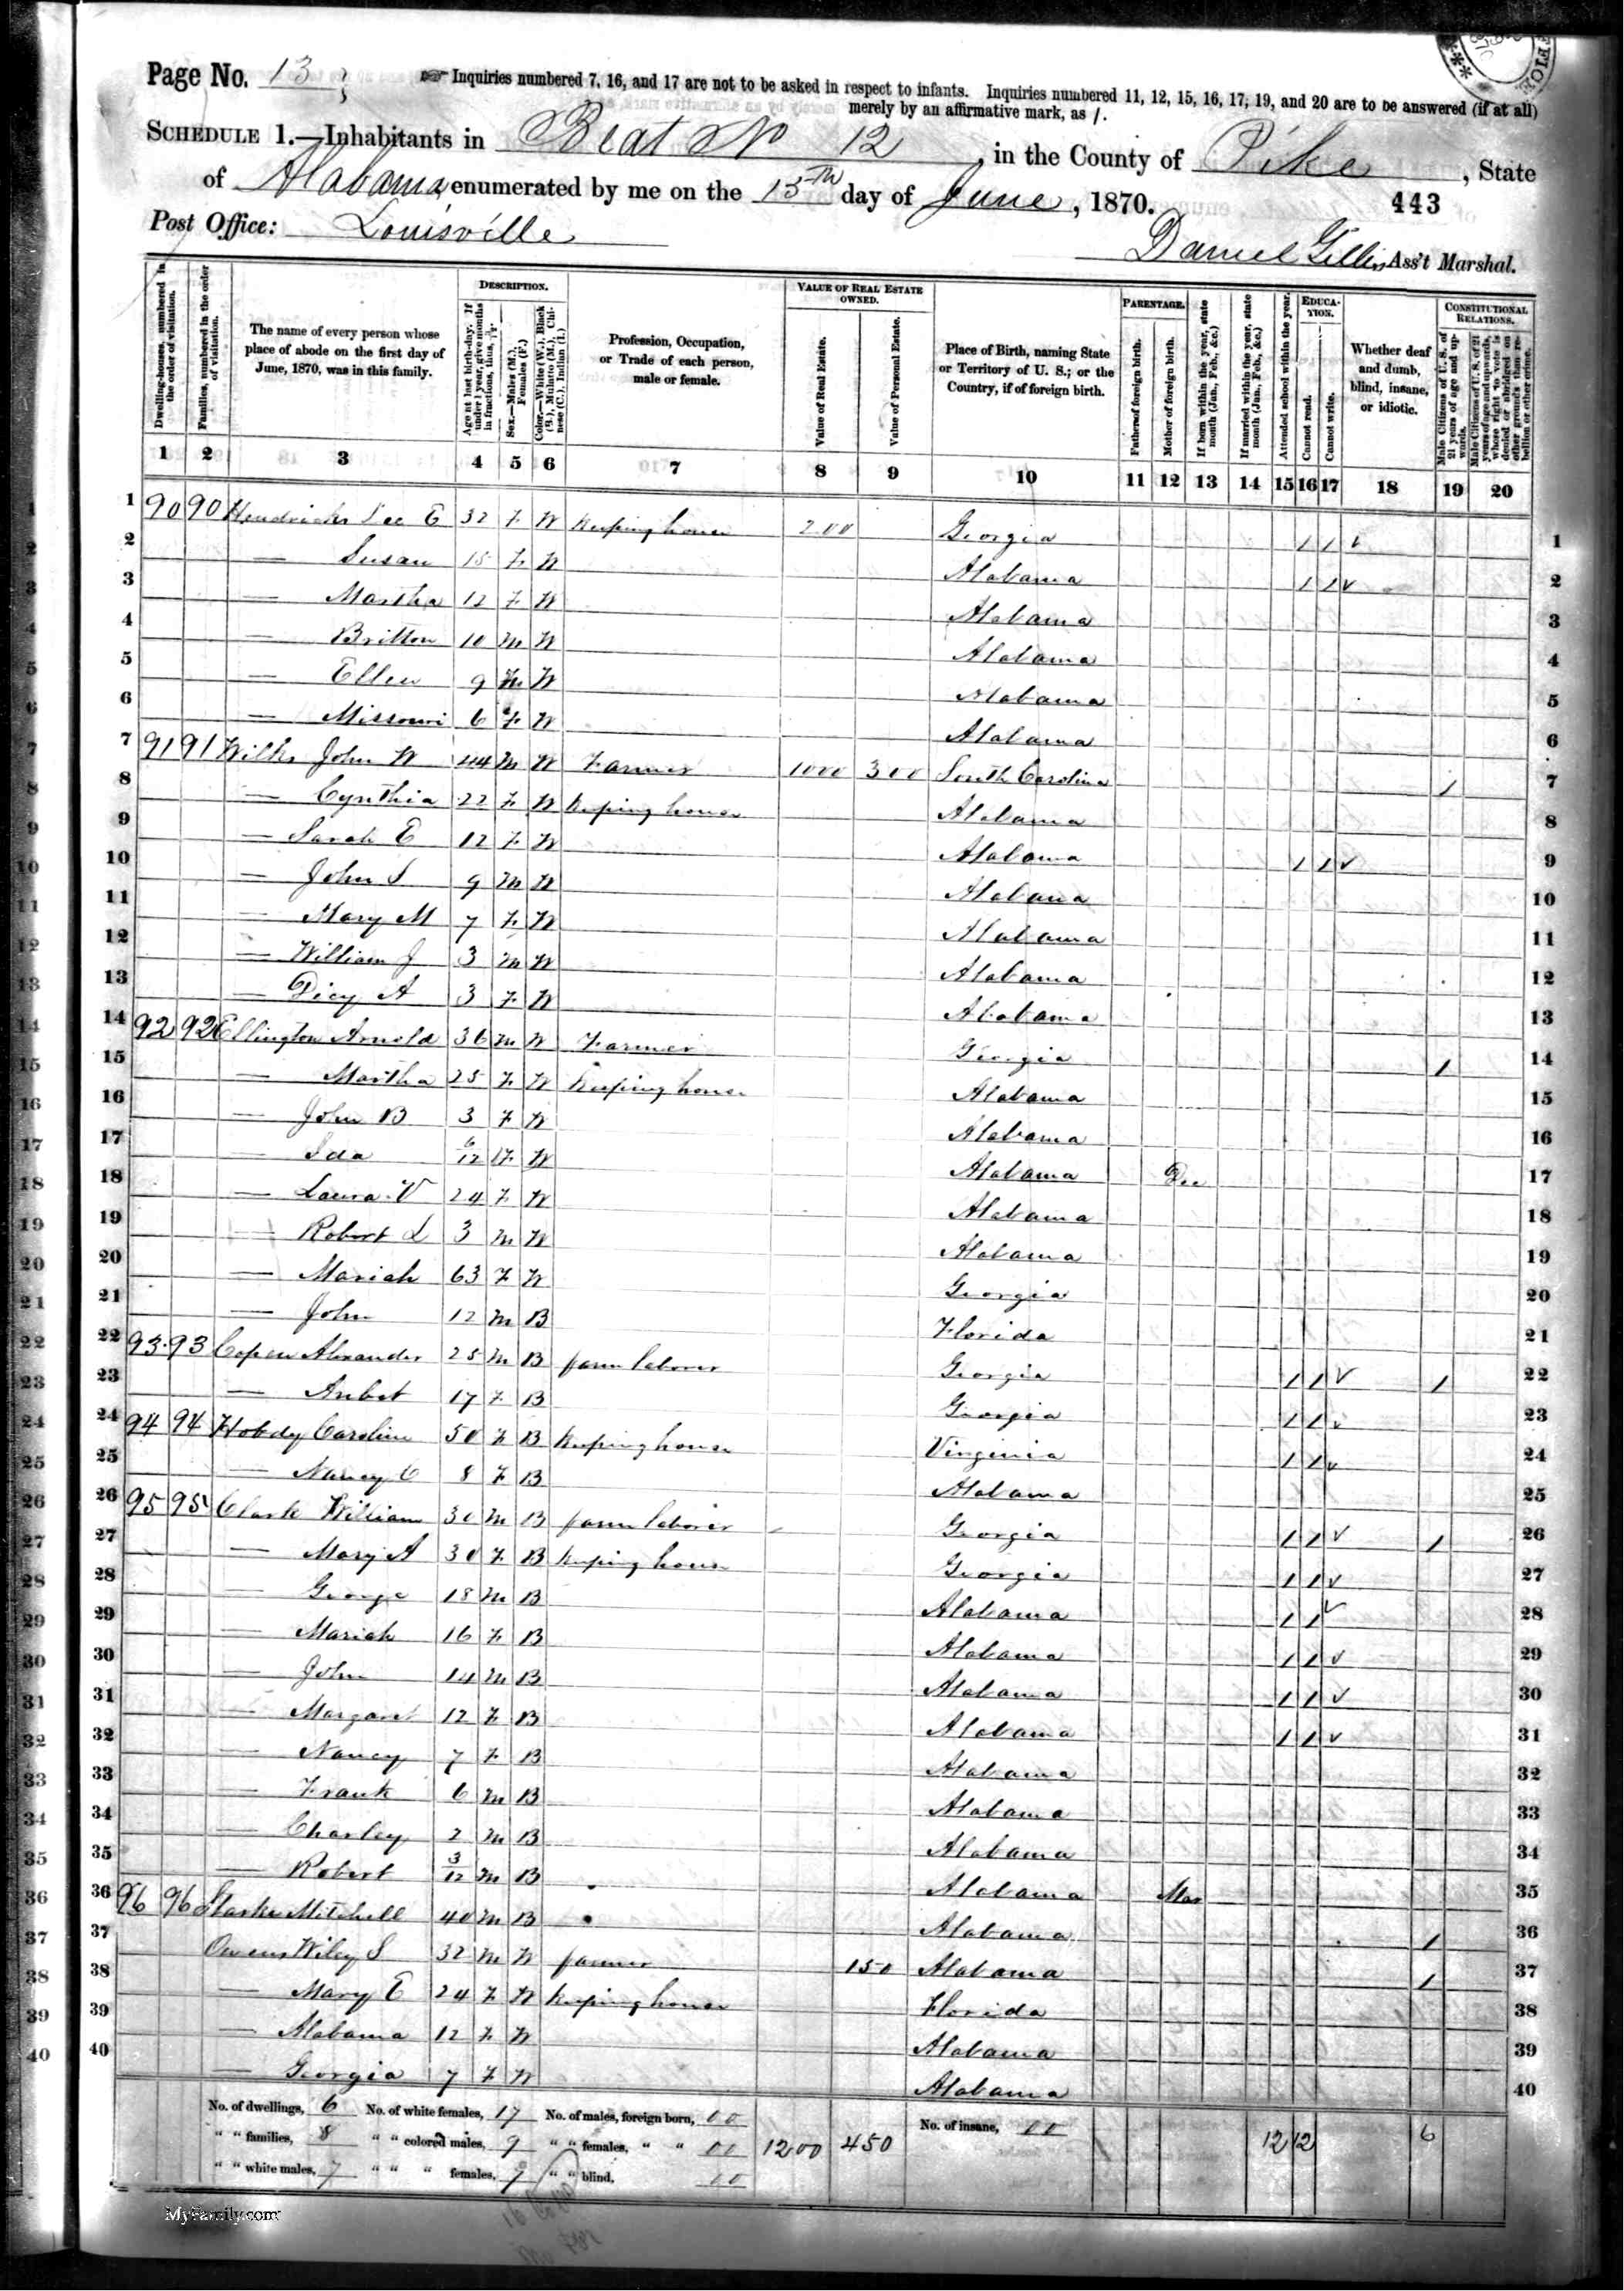 Page No. 13
Inquiries numbered 7, 16, and 17 are not to be asked in respect to infants. Inquiries numbered 11, 12, 15, 16, 17, 19, and 20 are to be answered (if at all)
merely by an affirmative mark, as /.
SCHEDULE 1.—Inhabitants in Beat No 12, in the County of Pike, State
of Alabama, enumerated by me on the 15th day of June, 1870.
443
Post Office: Louisville
Daniel Gillis, Ass't Marshal.
Dwelling-houses, numbered in the order of visitation.
Families, numbered in the order of visitation.
The name of every person whose place of abode on the first day of June, 1870, was in this family.
DESCRIPTION.
Age at last birth-day. If under 1 year, give months in fractions, thus,
Sex.—Males (M.), Females (F.)
Color.—White (W.), Black (B.), Mulatto (M.), Chinese (C.), Indian (I.)
Profession, Occupation, or Trade of each person, male or female.
VALUE OF REAL ESTATE OWNED.
Value of Real Estate.
Value of Personal Estate.
Place of Birth, naming State or Territory of U. S.; or the Country, if of foreign birth.
PARENTAGE.
Father of foreign birth.
Mother of foreign birth.
If born within the year, state month (Jan., Feb., &c.)
If married within the year, state month (Jan., Feb., &c.)
EDUCATION.
Attended school within the year.
Cannot read.
Cannot write.
Whether deaf and dumb, blind, insane, or idiotic.
CONSTITUTIONAL RELATIONS.
Male Citizens of U. S. of 21 years of age and upwards.
Male Citizens of U. S. of 21 years of age and upwards, whose right to vote is denied or abridged on other grounds than rebellion or other crime.
1 2 3 4 5 6 7 8 9 10 11 12 13 14 15 16 17 18 19 20
1 90 90 Hendricks E 32 F W Keeping house 200 Georgia / / √ 1
2 — Susan 15 F W Alabama / / √ 2
3 — Martha 12 F W Alabama 3
4 — Britton 10 M W Alabama 4
5 — Ellen 9 F W Alabama 5
6 — Missouri 6 F W Alabama 6
7 91 91 Wilks John W 44 M W Farmer 1000 300 South Carolina / 7
8 — Cynthia 22 F W Keeping house Alabama 8
9 — Sarah E 12 F W Alabama / / √ 9
10 — John S 9 M W Alabama 10
11 — Mary M 7 F W Alabama 11
12 — William J 3 M W Alabama 12
13 — Dicy A 3 F W Alabama 13
14 92 92 Ellington Arnold 36 M W Farmer Georgia / 14
15 — Martha 25 F W Keeping house Alabama 15
16 — John B 3 F W Alabama 16
17 — Ida 6/12 F W Alabama Dec 17
18 — Laura V 24 F W Alabama 18
19 — Robert L 3 M W Alabama 19
20 — Mariah 63 F W Georgia 20
21 — John 12 M B Florida 21
22 93 93 Alexander 25 M B farm laborer Georgia / / √ / 22
23 — 17 F B Georgia / / √ 23
24 94 94 Hobdy Caroline 50 F B Keeping house Virginia / / √ 24
25 — Nancy C 8 F B Alabama 25
26 95 95 Clark William 30 M B farm laborer Georgia / / √ / 26
27 — Mary A 30 F B Keeping house Georgia / / √ 27
28 — George 18 M B Alabama / / √ 28
29 — Mariah 16 F B Alabama / / √ 29
30 — John 14 M B Alabama / / √ 30
31 — Margaret 12 F B Alabama / / √ 31
32 — Nancy 7 F B Alabama 32
33 — Frank 6 M B Alabama 33
34 — Charley 2 M B Alabama 34
35 — Robert 3/12 M B Alabama Mar 35
36 96 96 Mitchell 40 M B Alabama / 36
37 Owens Wiley S 32 M W farmer 150 Alabama / 37
38 — Mary E 24 F W Keeping house Florida 38
39 — Alabama 12 F W Alabama 39
40 — Georgia 7 F W Alabama 40
No. of dwellings, 6 No. of white females, 17 No. of males, foreign born, 00 No. of insane, 00
" " families, 8 " " colored males, 9 " " females, " " 00 1200 450 12 12 6
" " white males, 7 " " " females, 7 " " blind, 00
MyFamily.com